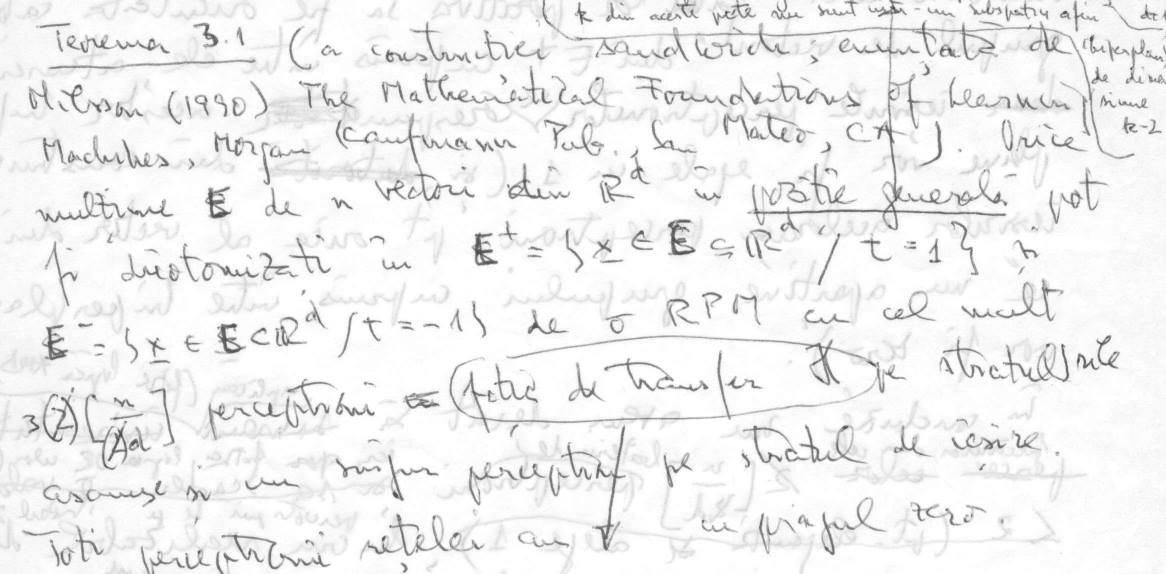 k din aceste vecte nu sunt într-un subspațiu afin
(hiperplan
de dimen
siune
k-2
Teorema 3.1 (a construcției sandwich, enunțată de
Nilsson (1990) The Mathematical Foundations of Learnin
Machines, Morgan Kaufmann Pub., San Mateo, CA). Orice
mulțime E de n vectori din ℝ^d în poziție generală pot
fi dicotomizați în E⁺ = { x ∈ E ⊆ ℝ^d / t = 1 } și
E⁻ = { x ∈ E ⊂ ℝ^d / t = -1 } de o RPM cu cel mult
3 (2) [n/(2)d] perceptroni (fcția de transfer H pe stratul/rile
ascunse și un singur perceptron pe stratul de ieșire.
Toți perceptronii rețelei au în pragul zero.